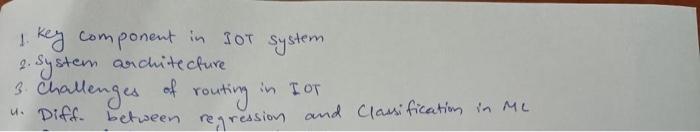 1. Key component in IOT system
2. System architecture
3. Challenges of routing in IOT
4. Diff. between regression and Classification in ML